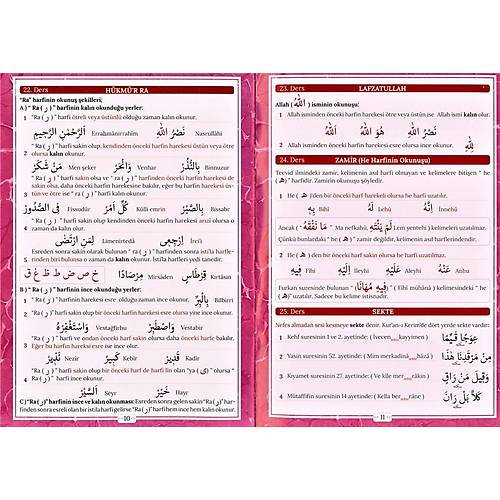 22. Ders HÜKMÜ'R RA
"Ra" harfinin okunuş şekilleri;
A) "Ra ( ر ) harfinin kalın okunduğu yerler:
1 "Ra ( ر ) harfi ötreli veya üstünlü olduğu zaman kalın okunur.
اَلرَّحْمٰنِ الرَّحٖيمِ Errahmânirrahîm نَصْرُ اللّٰهِ Nasrullâhi
2 "Ra ( ر ) harfi sakin olup, kendinden önceki harfin harekesi üstün veya ötre olursa kalın okunur.
مَنْ شَكَرَ Men şeker وَانْحَرْ Venhar بِالنُّذُرِ Binnuzur
3 "Ra ( ر ) harfi sakin olsa ve "ra ( ر ) harfinden önceki harfin harekesi de sakin olsa, daha önceki harfin harekesine bakılır, eğer bu harfin harekesi üstün ve ötre ise "ra ( ر ) harfi kalın okunur.
فِى الصُّدُورِ Fissudûr كُلُّ اَمْرٍ Küllü emrin بِالصَّبْرِ Bissabr
4 "Ra ( ر ) harfi sakin olup kendinden önceki harfin harekesi arızî olursa o zaman da kalın okunur.
لِمَنِ ارْتَضٰى Limenirtedâ اِرْجِعِى İrci'î
5 Esreden sonra sakin olarak bulunan "ra ( ر ) harfinden sonra isti'la harflerinden biri bulunursa o zaman da kalın okunur. İsti'la harfleri yedi tanedir.
خ ص ض ط ظ غ ق مِرْصَادًا Mirsâden قِرْطَاسٍ Kırtâsin
B) "Ra ( ر ) harfinin ince okunduğu yerler:
1 "Ra ( ر ) harfinin harekesi esre olduğu zaman ince okunur. بِالْبِرِّ Bilbirri
2 "Ra ( ر ) harfi sakin olup bir önceki harfin harekesi esre olursa yine ince okunur.
وَاسْتَغْفِرْهُ Vestağfirhu وَاصْطَبِرْ Vestabir
3 "Ra ( ر ) harfi ve ondan önceki harf sakin olursa daha önceki harfe bakılır. Eğer bu harfin harekesi esre ise ince olur.
نَذِيرْ Nezîr كَبِيرْ Kebîr قَدِيرْ Kadîr
4 "Ra ( ر ) harfi sakin olup bir önceki harf de harfi lîn olan "ya ( ى ) olursa "Ra ( ر ) harfi ince okunur.
اَلسَّيْرُ Seyr خَيْرُ Hayr
C) "Ra ( ر ) harfinin ince ve kalın okunması: Esreden sonra gelen sakin "Ra ( ر ) harfinden sonra esreli olan bir istila harfi gelirse "Ra ( ر ) harfi hem ince hem kalın okunur.
10
23. Ders LAFZATULLAH
Allah ( اَللّٰهُ ) isminin okunuşu:
1 Allah isminden önceki harfin harekesi ötre veya üstün ise Allah ismi kalın olur.
نَصْرُ اللّٰهِ هُوَ اللّٰهُ اَللّٰهُ
2 Allah isminden önceki harfin harekesi esre olursa ince okunur. لِلّٰهِ
24. Ders ZAMİR (He Harfinin Okunuşu)
Tecvid ilmindeki zamir, kelimenin asıl harfi olmayan ve kelimelere bitişen " he ( ه ) " harfidir. Zamirin okunuşu şöyledir.
1 He ( ه ) 'den bir önceki harf harekeli olursa he harfi uzatılır.
بِهٖ Bihî لَهُ Lehû اِنَّهُ İnnehû
Ancak ( مَا نَفْقَهُ - لَمْ يَنْتَهِ " Ma nefkahü, Lem yentehi ) kelimeleri uzatılmaz. Çünkü bunlardaki " he ( ه ) " zamir değildir, kelimenin asıl harflerindendir.
2 He ( ه ) den bir önceki harf sakin olursa he harfi uzatılmaz.
فِيهِ Fîhi اِلَيْهِ İleyhi عَلَيْهِ Aleyhi عَنْهُ Anhu
Furkan suresinde bulunan " ( فٖيهٖ مُهَانًا ) " ( Fîhî mühânâ ) kelimesindeki " he ( ه ) " uzatılır. Sadece bu kelime istisnadır.
25. Ders SEKTE
Nefes almadan sesi kesmeye sekte denir. Kur'an-ı Kerim'de dört yerde sekte vardır:
1 Kehf suresinin 1 ve 2. ayetinde: ( İvecen kayyimen ) عِوَجًا قَيِّمًا
2 Yasin suresinin 52. ayetinde: ( Mim merkadinâ hâzâ ) مِنْ مَرْقَدِنَا هٰذَا
3 Kıyamet suresinin 27. ayetinde: ( Ve kîle mer râkin ) وَقٖيلَ مَنْ رَاقٍ
4 Mütaffifin suresinin 14 ayetinde: ( Kella ber râne ) كَلَّا بَلْ رَانَ
11